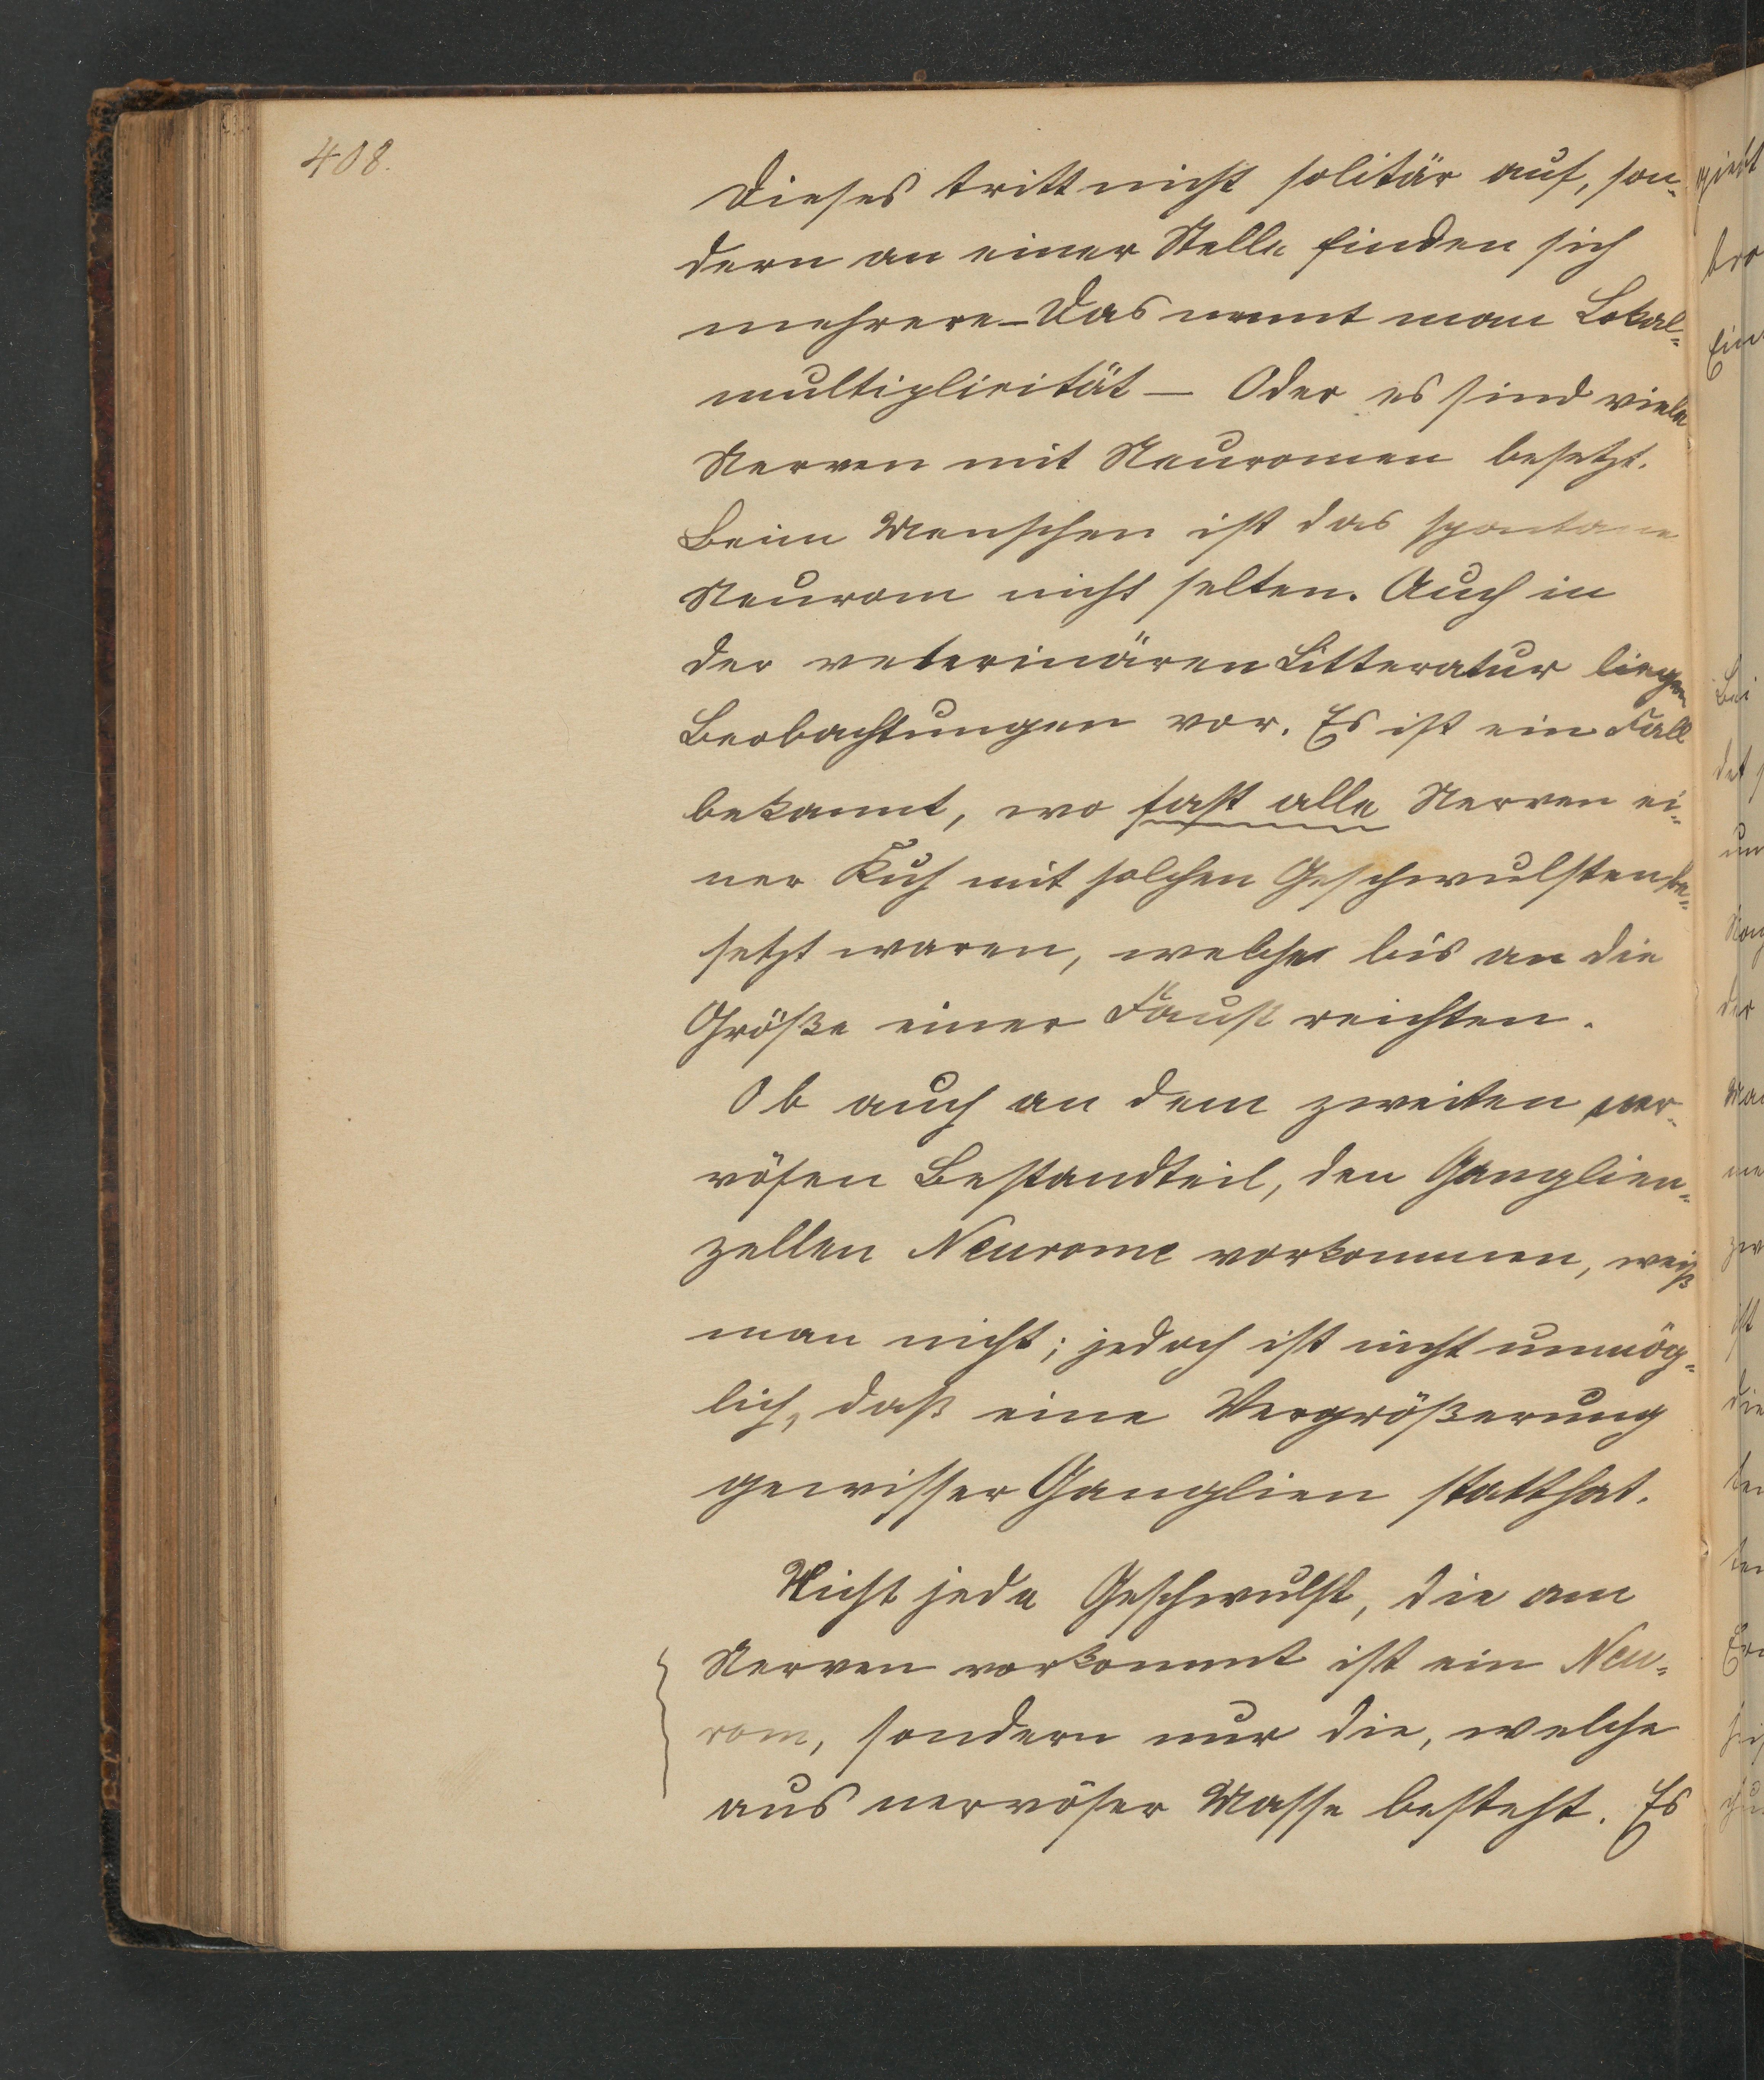 408.
Dieses tritt nicht solitär auf, son-
dern an einer Stelle finden sich
mehrere - Das nennt man Lokal-
multiplicität - Oder es sind viele
Nerven mit Neuromen besetzt.
Beim Menschen ist das spontane
Neurom nicht selten. Auch in
der veterinären Litteratur liegen
Beobachtungen vor. Es ist ein Fall
bekannt, wo fast alle Nerven ei-
ner Kuh mit solchen Geschwulsten be-
setzt waren, welche bis an die
Größe einer Faust reichten.
Ob auch an dem zweiten ner-
vösen Bestandteil, den Ganglien-
zellen Neurome vorkommen, weiß
man nicht; jedoch ist nicht unmög-
lich, daß eine Vergrößerung
gewisser Ganglien statthat.
Nicht jede Geschwulst, die am
Nerven vorkommt ist ein Neu-
rom, sondern nur die, welche
aus nervöser Masse besteht. Es